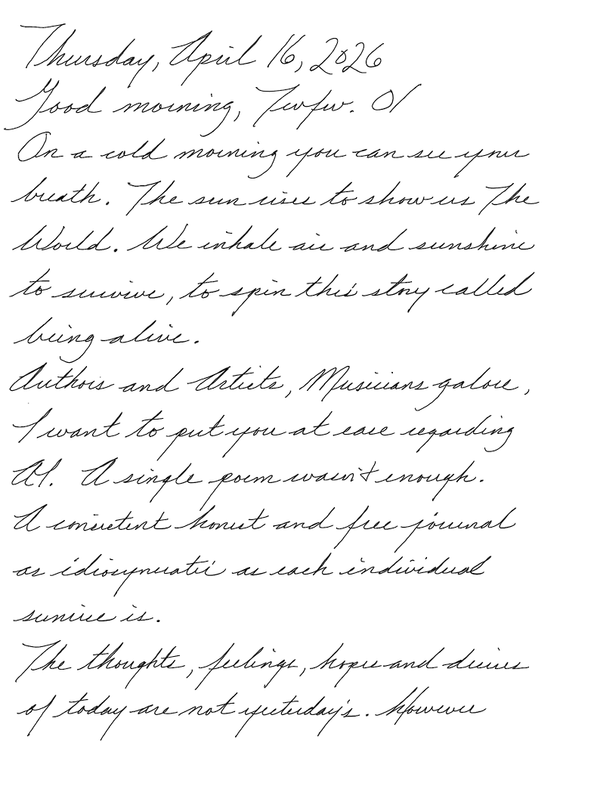 Thursday, April 16, 2026
Good morning, Twfw. 01
On a cold morning you can see your
breath. The sun rises to show us The
World. We inhale air and sunshine
to survive, to spin this story called
being alive.
Authors and Artists, Musicians galore,
I want to put you at ease regarding
AI. A single poem wasn't enough.
A consistent honest and free journal
as idiosyncratic as each individual
sunrise is.
The thoughts, feelings, hopes and desires
of today are not yesterday's. However